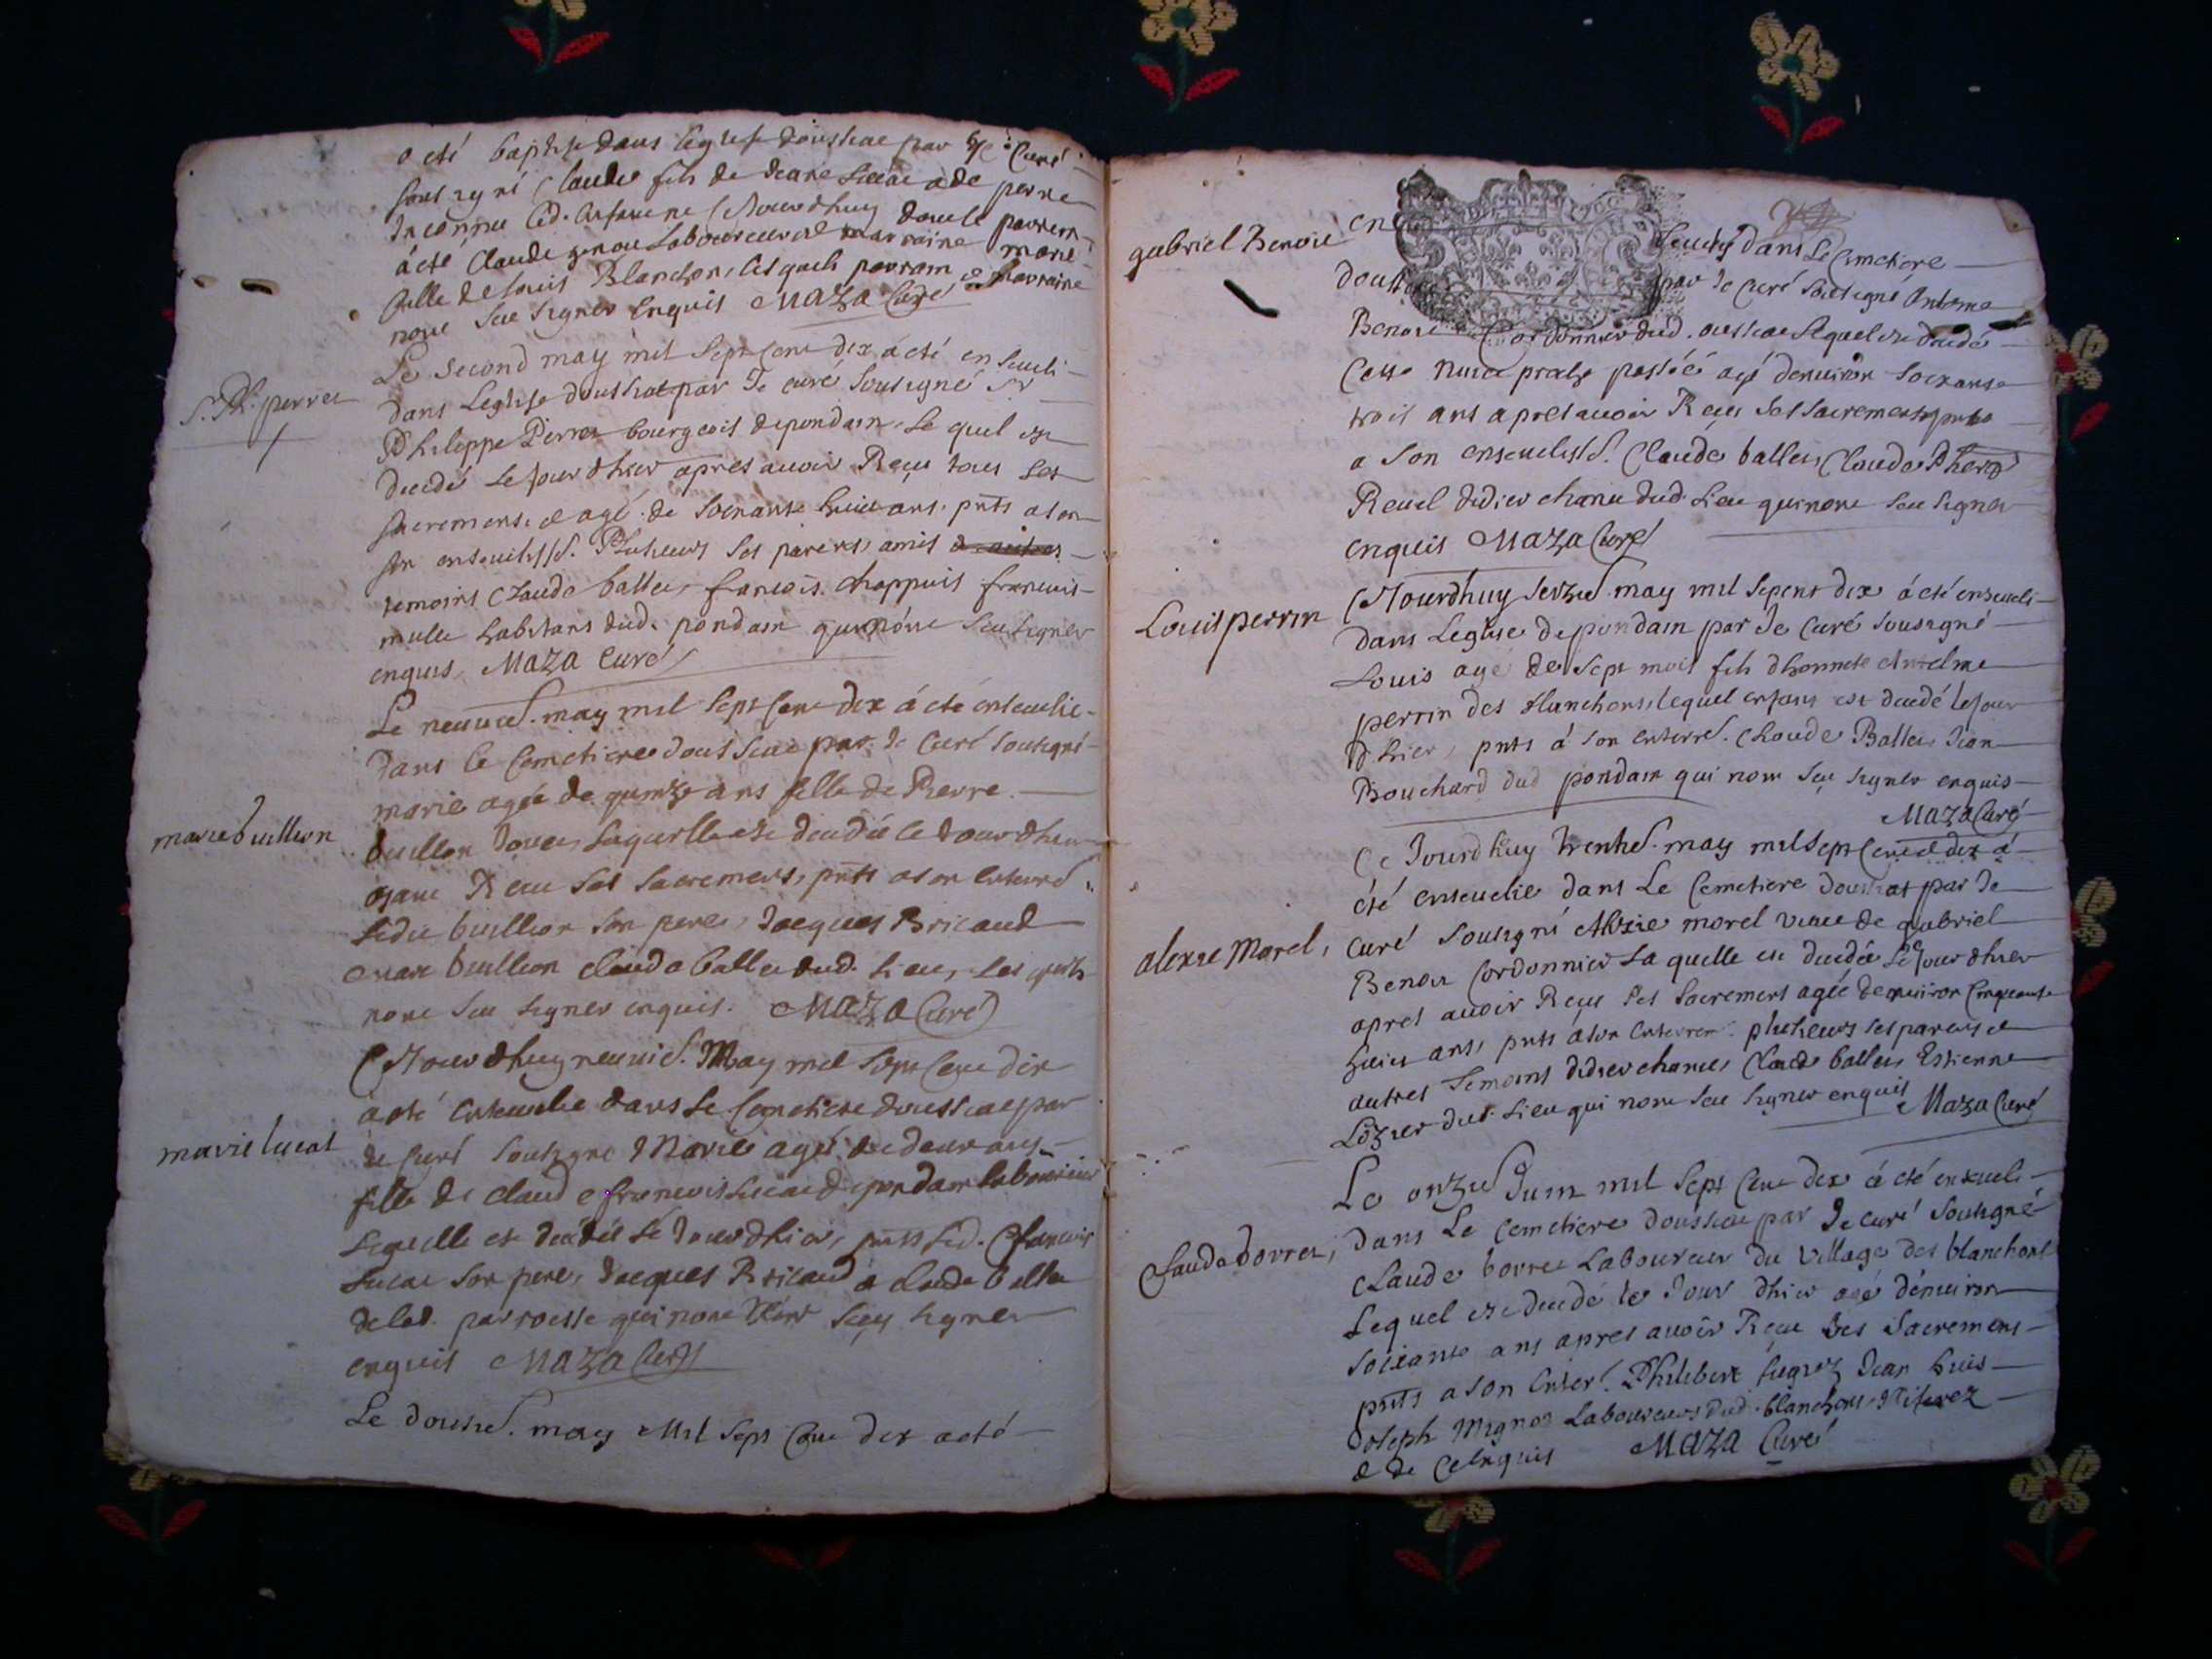 a eté baptise dans leglise doussiat par Je Curé
soussigné Claude fils de Jeane Lucat a de perre
Inconnu led. Enfant ne ce Jourdhuy dont le parrein
a eté Claude genou Laboureur et marraine marie
fille de Louis Blanchon, lesquels parrain et marraine
nont sceu signer Enquis Maza Curé
S. Ph. perret
Le second may mil sept cent dix á eté enseveli
dans Leglise doussiat par Je curé soussigné Sr
Philippe Perret bourgeois depondain, Le quel est
decedé le Jour dhier apres avoir Reçu tous les
sacremens, et agé de soixante huict ans, pnts a son
son ensevelissd. Plusieurs ses parens, amis
temoins Claude ballet, francois chappuis francois
mulet habitans dud. pondain qui nont sceu signer
enquis, Maza Curé
marie buillion
Le neuvied. may mil sept cent dix á eté ensevelie
dans le cemetiere doussiat par Je curé soussigné
marie agée de quinze ans fille de Pierre
buillon laquelle est decedée le Jour dhier
ayant Receu ses sacremens, pnts a son enterred
ledit buillion son pere, Jacques Bricaud
buillion claude ballet dud. Lieu, les quels
nont sceu signer enquis. Maza Curé
marie lucat
Ce Jourdhuy neuvied. May mil sept cent dix
a eté ensevelie dans Le Cemetiere doussiat par
Je curé soussigné Marie agée de deux ans
fille de claude francois Lucat depondain laboureur
Laquelle est decedée Le Jour dhier, pnts led. C. francois
Lucat son pere, Jacques Bricaud et claude ballet
delad. parroisse qui nont sceu signer
enquis Maza Curé
Le douzied. may Mil sept cent dix a eté
gabriel Benoit
ensevely dans Le Cemetiere
doussiat par Je curé soussigné Antoine
Benoit Cordonnier dud. oussiat lequel est decedé
Cette nuict passée agé denviron soixante
trois ans apres avoir Reçu ses sacremens pnts
a son ensevelissd. Claude ballet, Claude Pherod
Revel didier chanu dud. Lieu qui nont sceu signer
enquis Maza Curé
Louis perrin
Ce Jourdhuy seized. may mil sept cent dix á eté enseveli
dans Leglise depondain par Je curé soussigné
Louis agé de sept mois fils dhonnete Anthelme
perrin des blanchons, lequel enfant est decedé le Jour
dhier, pnts á son enterred. Claude Ballet Jean
Bouchard dud pondain qui nont sceu signer enquis
Maza Curé
alexie Morel,
Ce Jourdhuy trented. may mil sept cent et dix á
été ensevelie dans Le Cemetiere doussiat par Je
curé soussigné Alexie morel veuve de gabriel
Benoit Cordonnier La quelle est decedée Le Jour dhier
apres avoir Reçu ses sacremens agée denviron cinquante
huict ans, pnts a son enterrem. plusieurs ses parens et
autres temoins didier chanu, Claude ballet, Estienne
Lozier dud. Lieu qui nont sceu signer enquis Maza Curé
Claude borret,
Le onzied Juin mil sept cent dix á eté enseveli
dans Le cemetiere doussiat par Je curé soussigné
Claude borret Laboureur du village des blanchons
Lequel est decedé le Jour dhier agé denviron
soixante ans apres avoir Reçu ses sacremens
pnts a son enter. Philibert Jean huis
Joseph Mignot Laboureurs dud. blanchons
et de ce Enquis Maza Curé